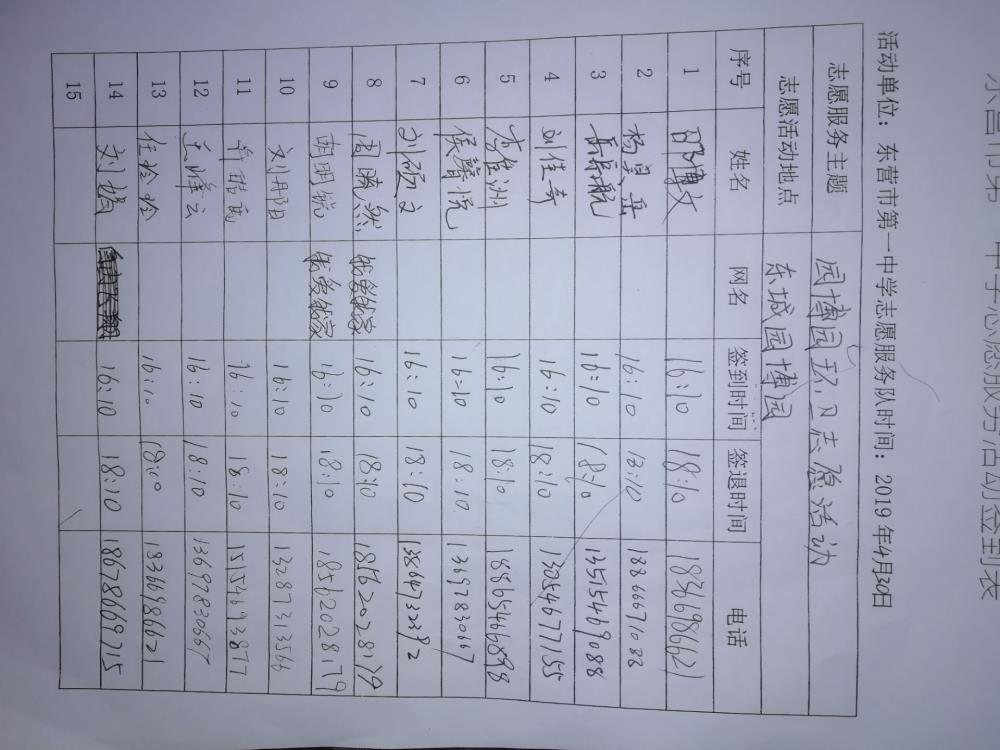 东营市第一中学志愿服务活动签到表
活动单位：东营市第一中学志愿服务队时间：2019年4月30日
志愿服务主题 园博园 志愿活动
志愿活动地点 东城园博园
序号 姓名 网名 签到时间 签退时间 电话
1 邵 16:10 18:10 18369866621
2 杨昊岳 16:10 18:10 18866671088
3 16:10 18:10 13515469088
4 刘佳奇 16:10 18:10 13254677155
5 李佳洲 16:10 18:10 18865466898
6 侯馨悦 16:10 18:10 13697830667
7 刘硕文 16:10 18:10 13864732392
8 周晓然 我爱我家 16:10 18:10 18562028179
9 胡明锐 我爱我家 16:10 18:10 18562028179
10 刘丹阳 16:10 18:10 13287313566
11 16:10 18:10 15154693877
12 孟烽云 16:10 18:10 13697830667
13 任玲玲 16:10 18:10 18366986621
14 刘婧 16:10 18:10 18678669715
15